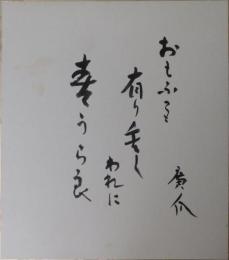 おもふこと
有り無し
われに
春うら良
廣爪